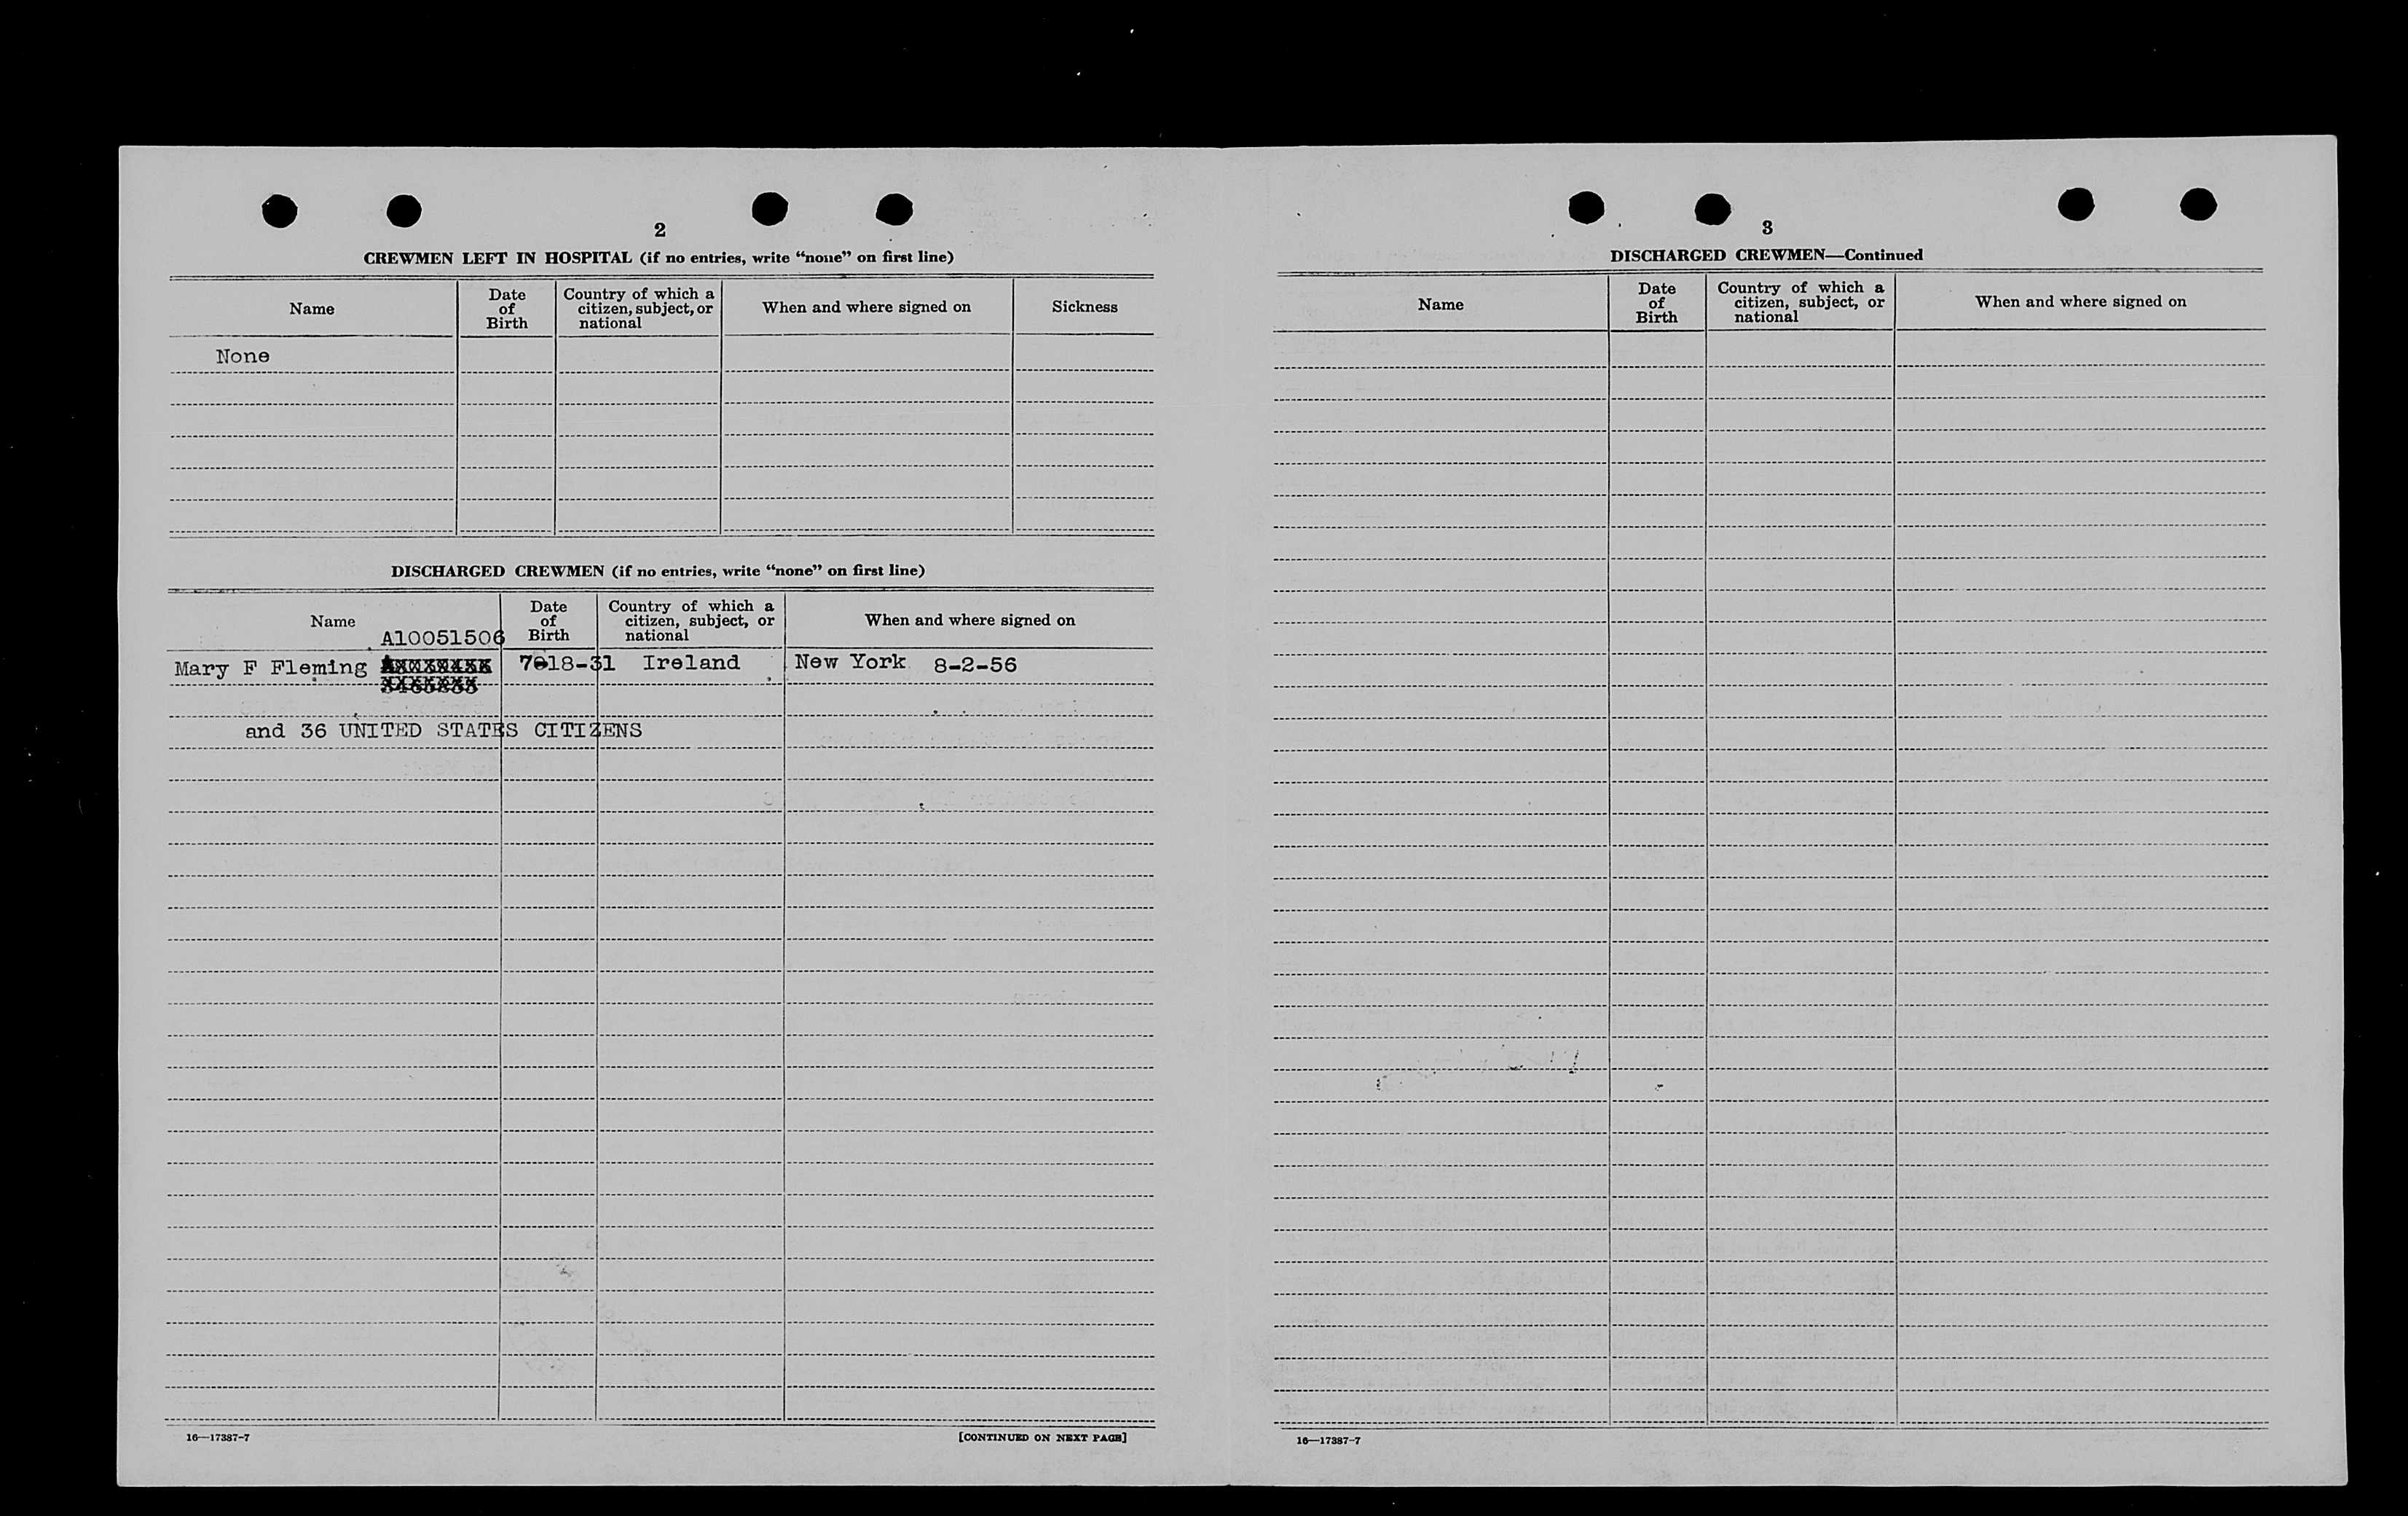 2
CREWMEN LEFT IN HOSPITAL (if no entries, write “none” on first line)
Name
Date of Birth
Country of which a citizen, subject, or national
When and where signed on
Sickness
None
DISCHARGED CREWMEN (if no entries, write “none” on first line)
Name
Date of Birth
Country of which a citizen, subject, or national
When and where signed on
A10051506
Mary F Fleming 7-18-31 Ireland New York 8-2-56
and 36 UNITED STATES CITIZENS
16—17387-7
[CONTINUED ON NEXT PAGE]
3
DISCHARGED CREWMEN—Continued
Name
Date of Birth
Country of which a citizen, subject, or national
When and where signed on
16—17387-7